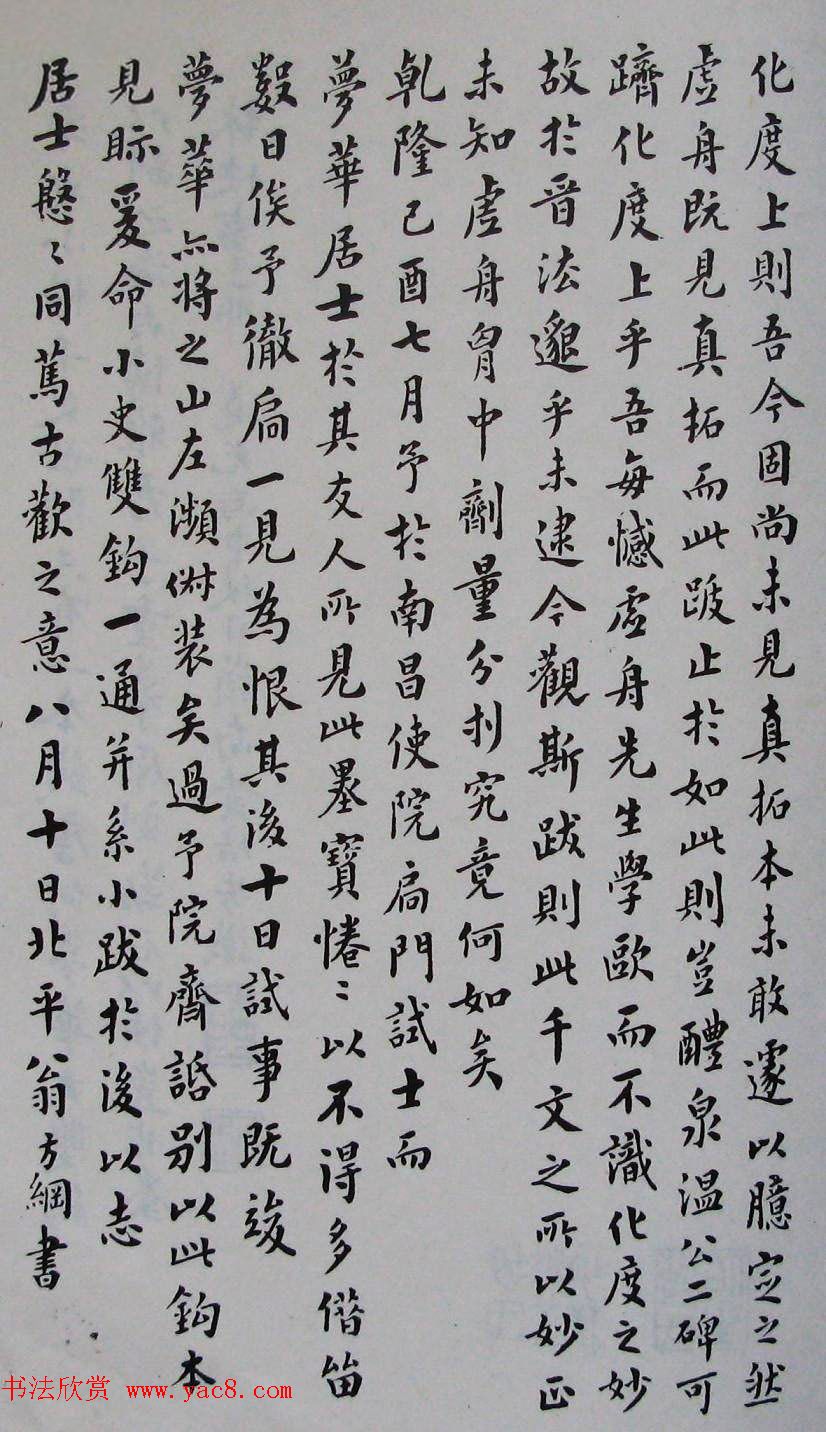 化度上則吾今固尚未見真拓本未敢遽以臆定之然
虛舟既見真拓而此跋止於如此則豈醴泉溫公二碑可
躋化度上乎吾每憾虛舟先生學歐而不識化度之妙
故於晉法邈乎未逮今觀斯跋則此千文之所以妙正
未知虛舟胷中劑量分刌究竟何如矣
乹隆己酉七月予於南昌使院扃門試士而
夢華居士於其友人所見此墨寶惓〻以不得多偕留
數日俟予徹扃一見為恨其後十日試事既竣
夢華亦將之山左瀕俶装矣過予院齋話別以此鈎本
見眎爰命小史雙鈎一通并系小跋於後以志
居士慇〻同篤古歡之意八月十日北平翁方綱書
书法欣赏 www.yac8.com